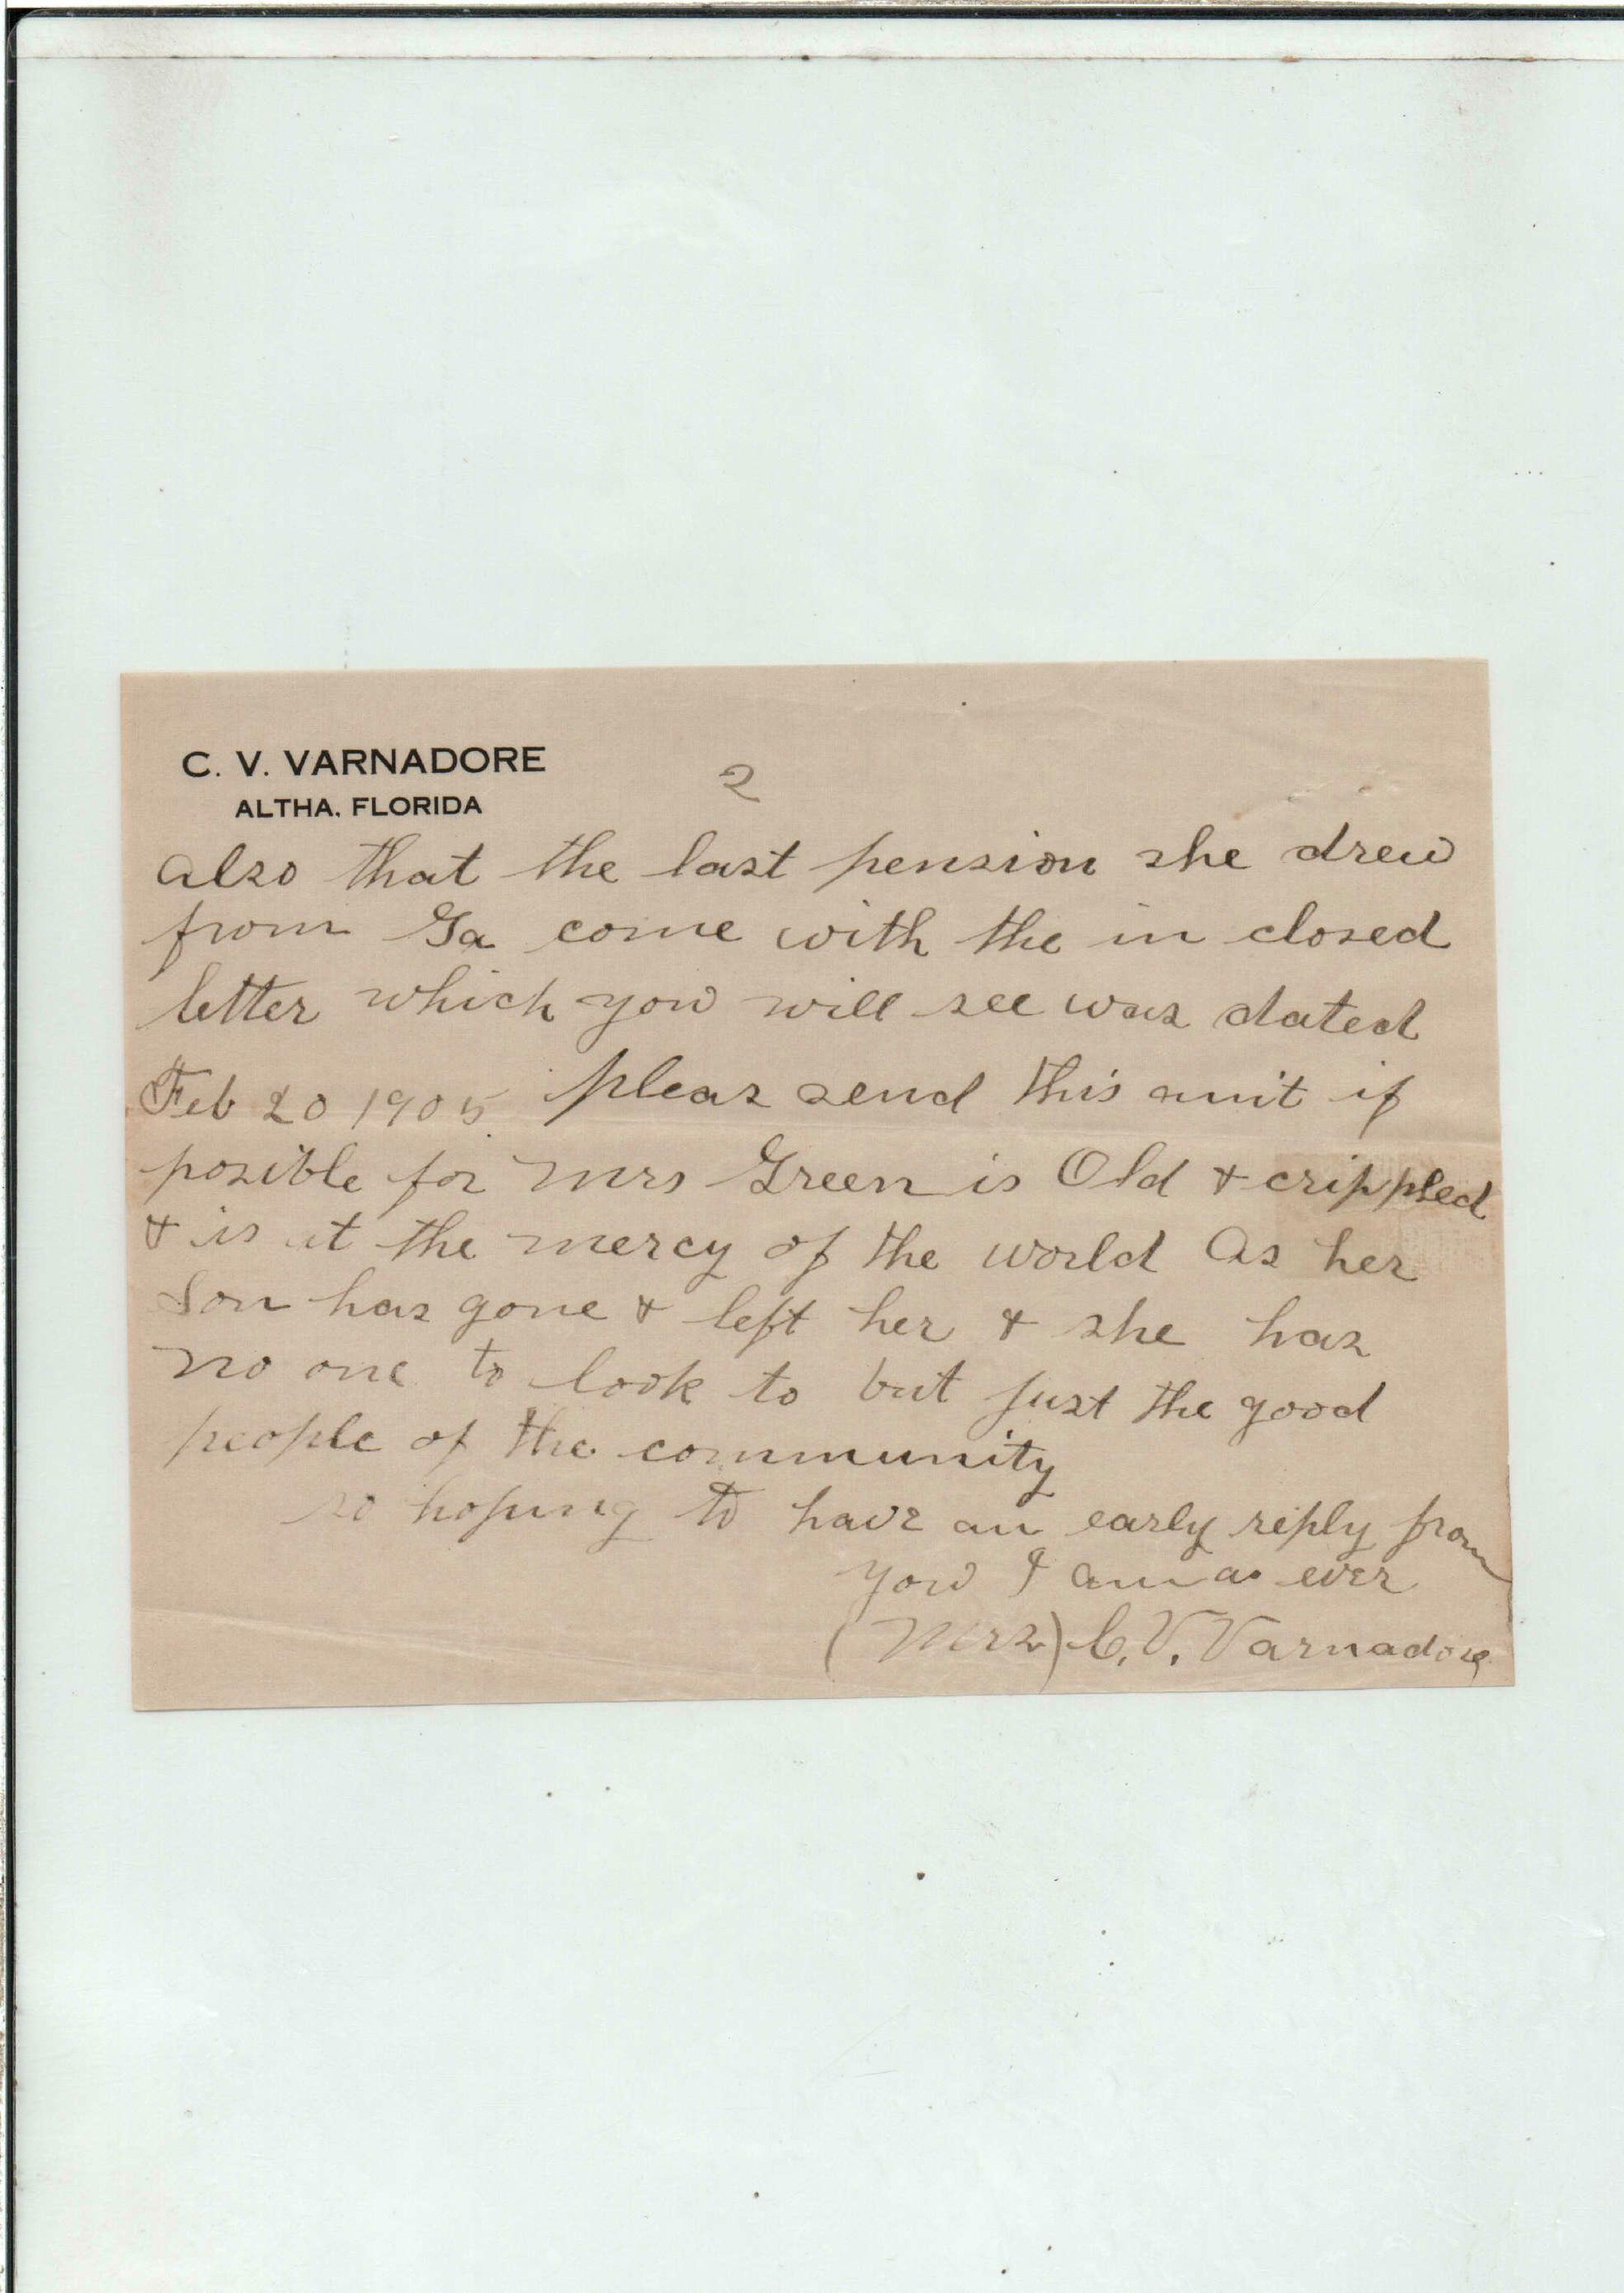 C. V. VARNADORE
ALTHA, FLORIDA
2
also that the last pension she drew
from Ga come with the in closed
letter which you will see was dated
Feb 20 1905 pleas send this unit if
posible for Mrs Green is Old & crippled
& is at the mercy of the world As her
Son has gone & left her & she has
no one to look to but just the good
people of the community
so hoping to have an early reply from
you I am as ever
(Mrs) C. V. Varnadore